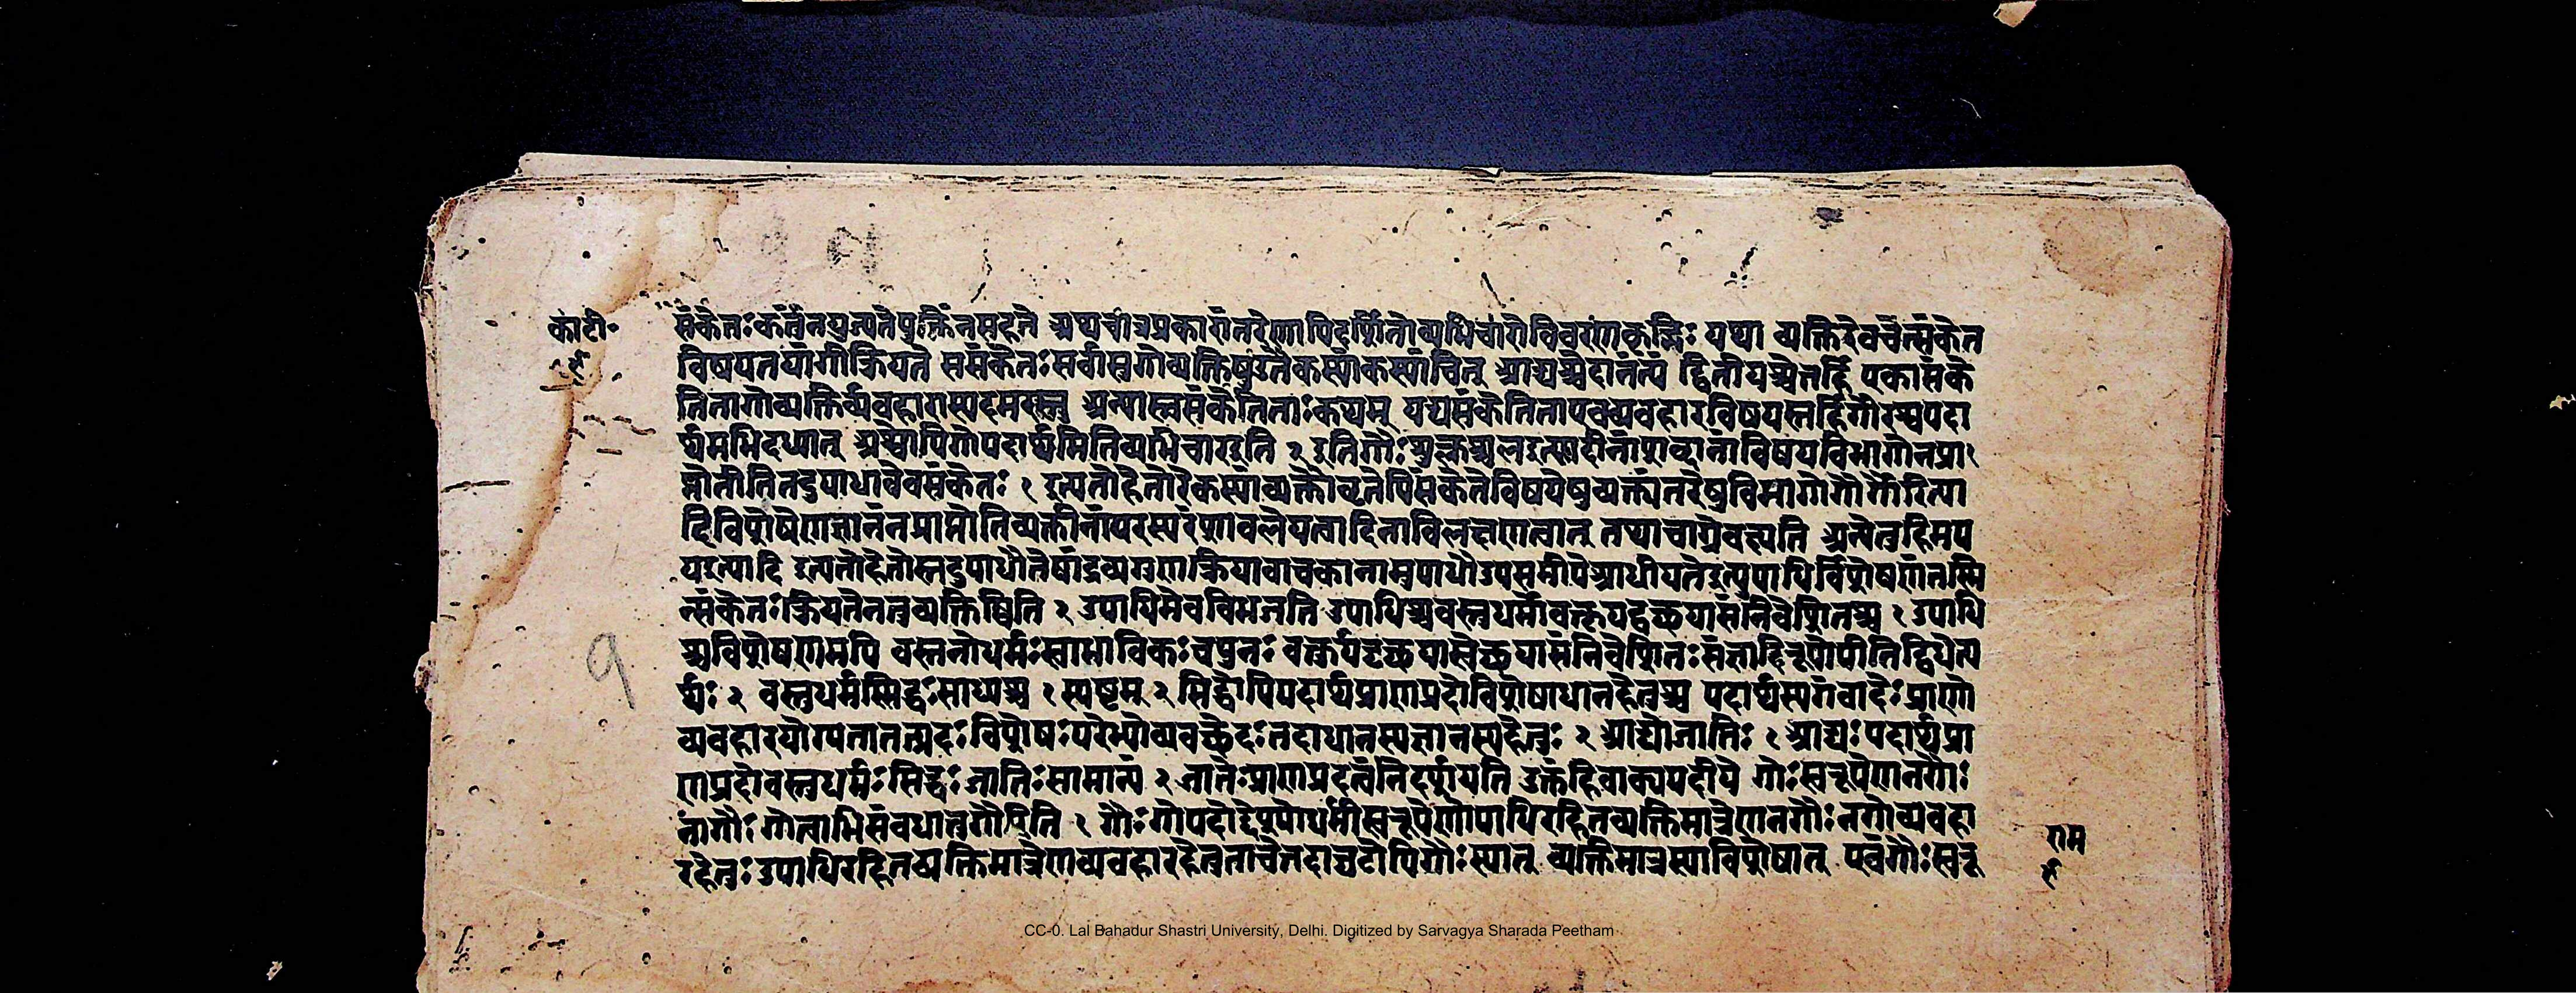 का॰ टी॰
संकेतः कर्तुं न युज्यते युक्तिं न सहते अथ चात्र प्रकारांतरेणापि दर्शितो व्यभिचारो विवरणकृद्भिः यथा व्यक्तिरेव चेत्संकेत
विषयतयांगीक्रियते स संकेतः सर्वासु गोव्यक्तिषु उतैकस्यां कस्यांचित् आद्यश्चेदानंत्यं द्वितीयश्चेत्तर्हि एका संके
तिता गोव्यक्तिर्व्यवहारास्पदमस्तु अन्यास्त्वसंकेतिताः कथम् यद्यसंकेतिता एव व्यवहारविषयस्तर्हि गौरश्वपदा
र्थमभिदध्यात् अश्वोपि गोपदार्थमिति व्यभिचार इति २ इति गौः शुक्लश्चल इत्यादीनां शब्दानां विषयविभागो न प्रा
प्नोतीति तदुपाधावेव संकेतः १ इत्यतो हेतोरेकस्यां व्यक्तौ कृतेपि संकेते विषयेषु व्यक्त्यंतरेषु विभागो गौर्गौरित्या
दिविशेषेण ज्ञानं न प्राप्नोति व्यक्तीनां परस्परं शावलेयत्वादिना विलक्षणत्वात् तथा चाग्रे वक्ष्यति अन्येतु हिमप
य इत्यादि इत्यतो हेतोस्तदुपाधौ तेषां द्रव्यगुणक्रियावाचकानामुपाधौ उप समीपे आधीयते इत्युपाधिर्विशेषणं तस्मि
न्संकेतः क्रियते न तु व्यक्तिष्विति २ उपाधिमेव विभजति उपाधिश्च वस्तुधर्मो वक्तृयदृच्छया संनिवेशितश्च १ उपाधि
श्च विशेषणमपि वस्तुनो धर्मः स्वाभाविकः च पुनः वक्तुर्यदृच्छया स्वेच्छया संनिवेशितः संज्ञादिरूपोपीति द्विधेत्य
र्थः २ वस्तुधर्मः सिद्धः साध्यश्च १ स्पष्टम् २ सिद्धोपि पदार्थप्राणप्रदो विशेषाधानहेतुश्च पदार्थस्य गवादेः प्राणो
व्यवहारयोग्यता तत्प्रदः विशेषः परेभ्यो व्यवच्छेदः तदाधानस्य ज्ञानस्य हेतुः २ आद्यो जातिः १ आद्यः पदार्थप्रा
णप्रदो वस्तुधर्मः सिद्धः जातिः सामान्यं २ जातेः प्राणप्रदत्वं निदर्शयति उक्तं हि वाक्यपदीये गौः स्वरूपेण न गौः
नागौः गोत्वाभिसंबंधात्तु गौरिति १ गौः गोपदोद्देश्यो धर्मी स्वरूपेणोपाधिरहितव्यक्तिमात्रेण न गौः न गोव्यवहा
रहेतुः उपाधिरहितव्यक्तिमात्रेण व्यवहारहेतुता चेत्तदा घटोपि गौः स्यात् व्यक्तिमात्रस्याविशेषात् एवं गौः स्वरू
राम
१
CC-0. Lal Bahadur Shastri University, Delhi. Digitized by Sarvagya Sharada Peetham